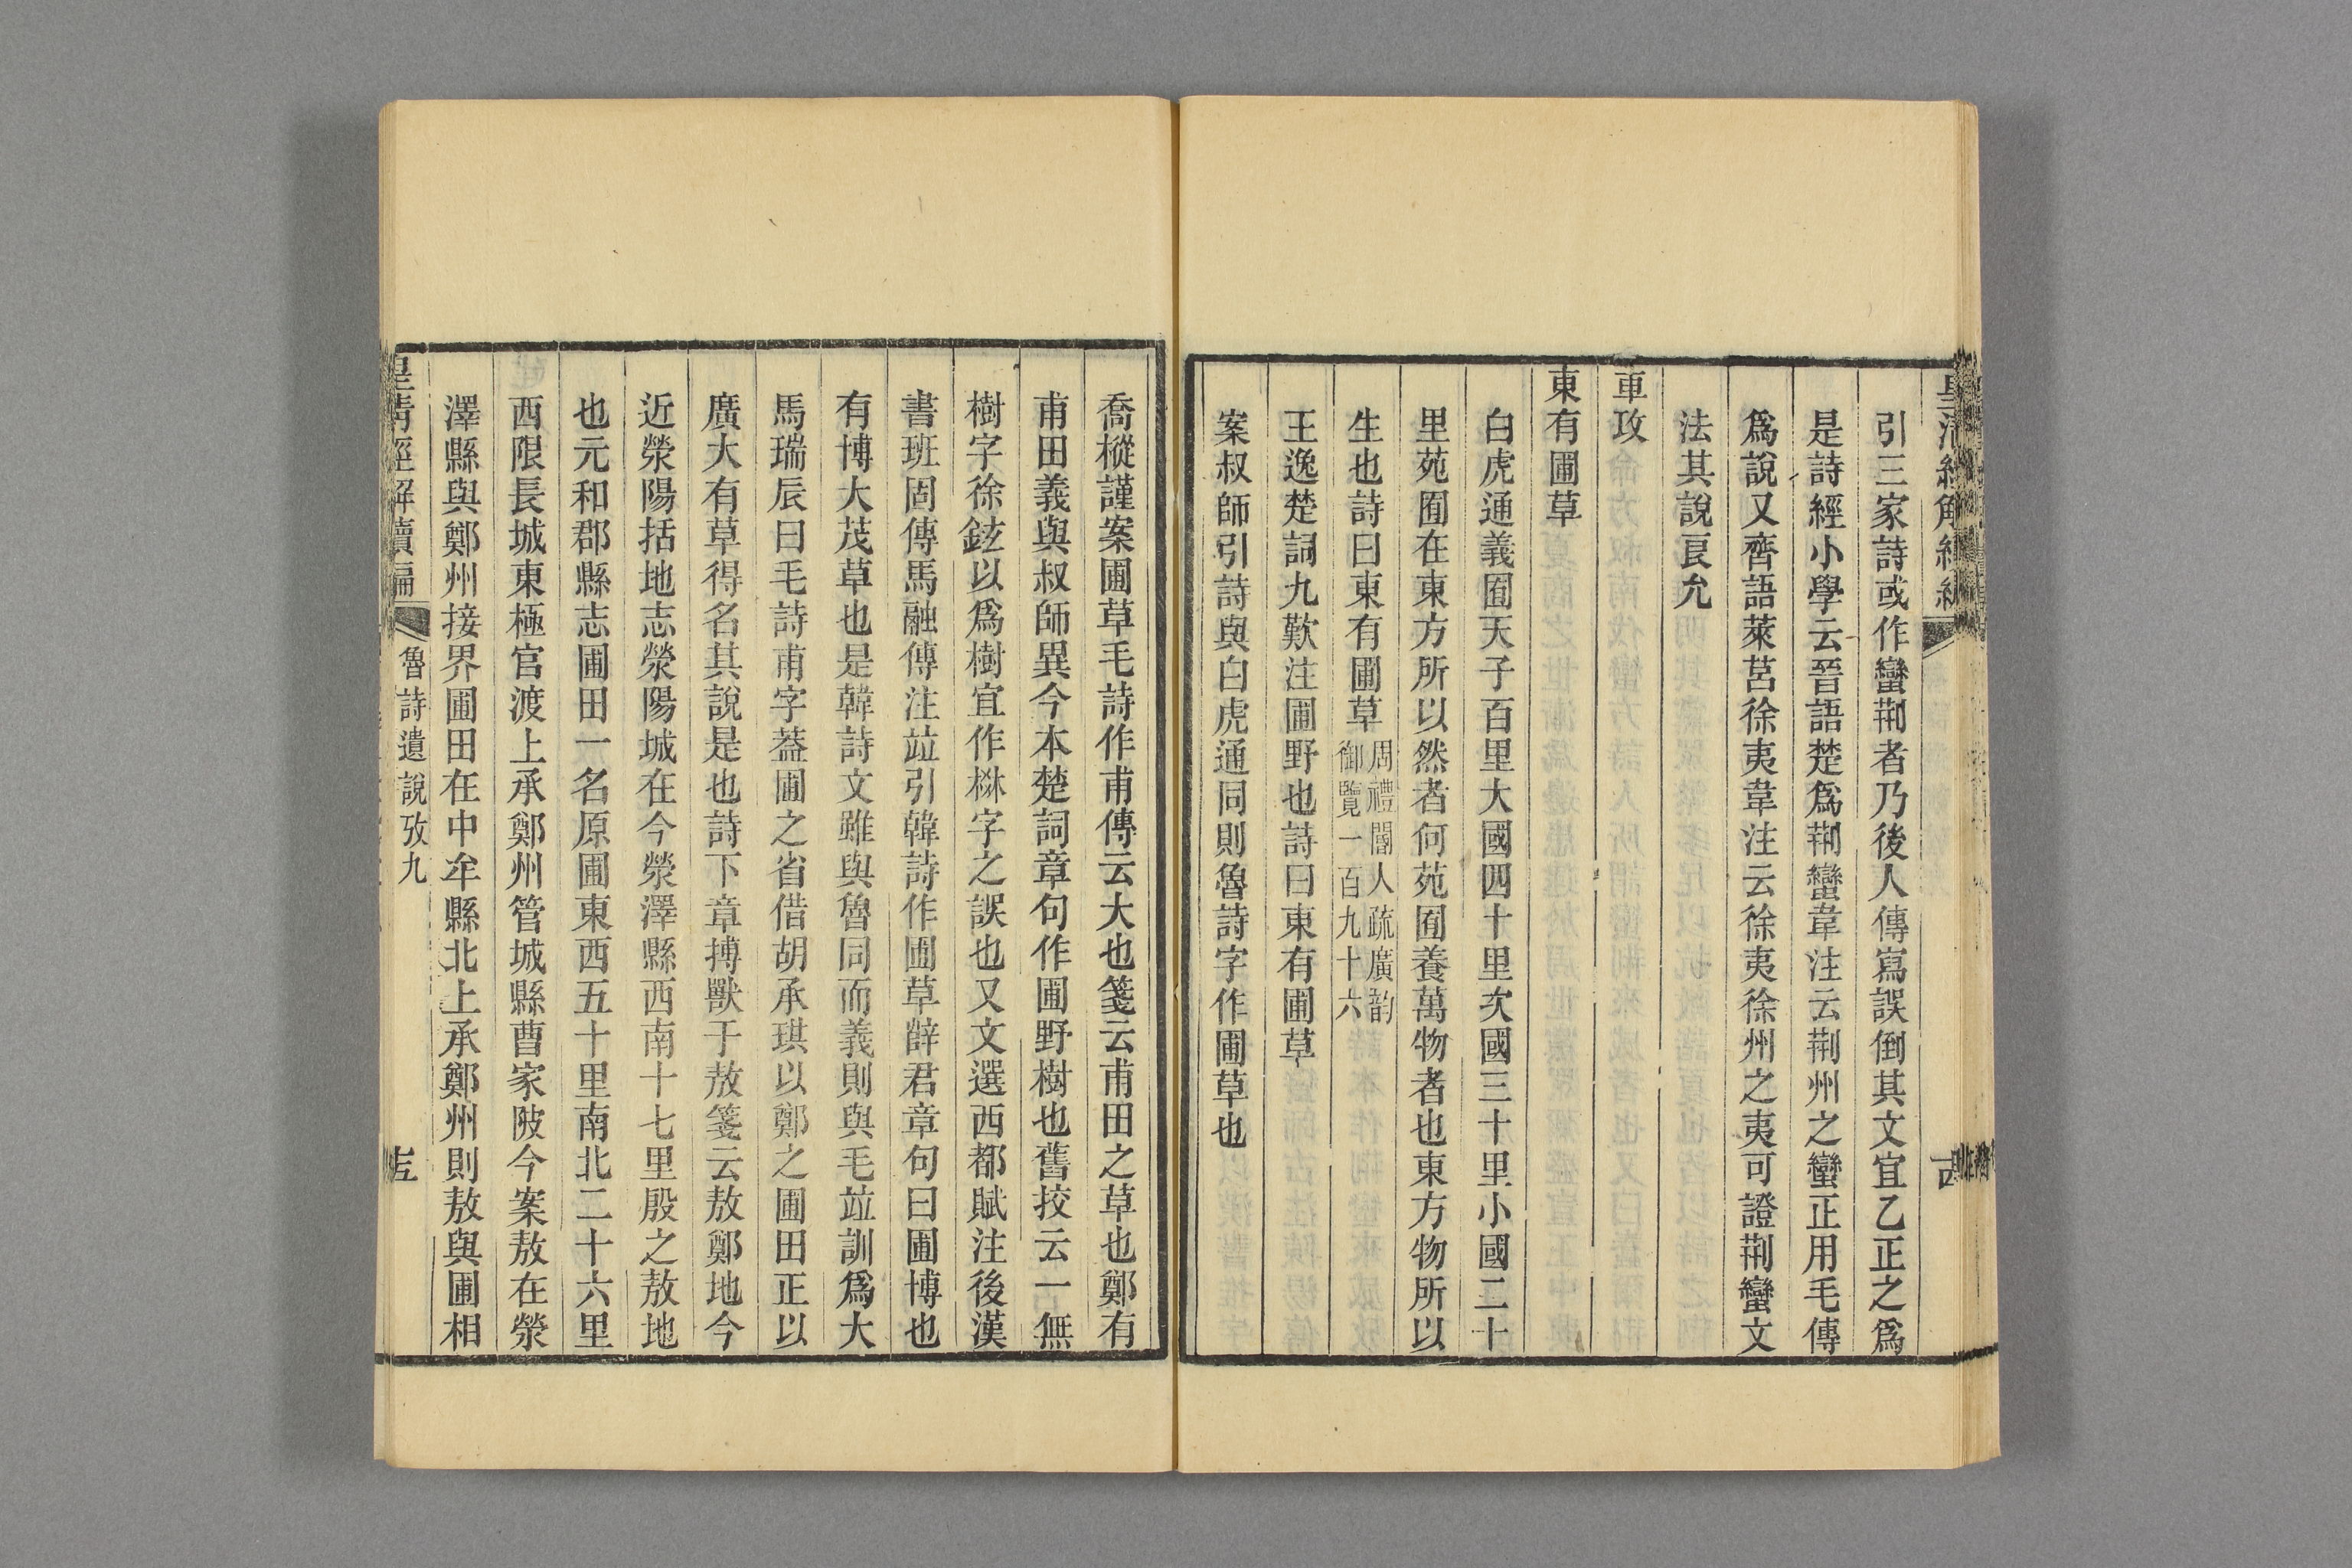 引三家詩或作蠻荆者乃後人傳寫誤倒其文宜乙正之爲
是詩經小學云晉語楚爲荆蠻韋注云荆州之蠻正用毛傳
爲說又齊語萊莒徐夷韋注云徐夷徐州之夷可證荆蠻文
法其說良允
車攻
東有圃草
白虎通義囿天子百里大國四十里次國三十里小國二十
里苑囿在東方所以然者何苑囿養萬物者也東方物所以
生也詩曰東有圃草周禮閽人疏廣韵御覽一百九十六
王逸楚詞九歎注圃野也詩曰東有圃草
案叔師引詩與白虎通同則魯詩字作圃草也
喬樅謹案圃草毛詩作甫傳云大也箋云甫田之草也鄭有
甫田義與叔師異今本楚詞章句作圃野樹也舊挍云一無
樹字徐鉉以爲樹宜作楙字之誤也又文選西都賦注後漢
書班固傳馬融傳注竝引韓詩作圃草薛君章句曰圃博也
有博大茂草也是韓詩文雖與魯同而義則與毛竝訓爲大
馬瑞辰曰毛詩甫字葢圃之省借胡承珙以鄭之圃田正以
廣大有草得名其說是也詩下章搏獸于敖箋云敖鄭地今
近滎陽括地志滎陽城在今滎澤縣西南十七里殷之敖地
也元和郡縣志圃田一名原圃東西五十里南北二十六里
西限長城東極官渡上承鄭州管城縣曹家陂今案敖在滎
澤縣與鄭州接界圃田在中牟縣北上承鄭州則敖與圃相
皇清經解續編
魯詩遺說攷九